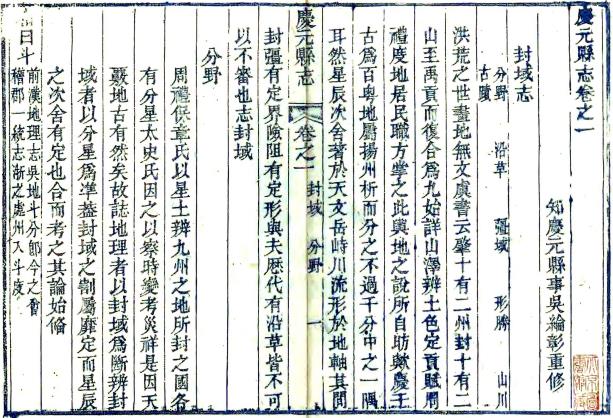 慶元縣志卷之一
知慶元縣事吳綸彰重修
封域志
分野 沿革 疆域 形勝 山川
古蹟
洪荒之世畫地無文虞書云肇十有二州封十有二
山至禹貢而復合爲九始詳山澤辨土色定貢賦周
禮度地居民職方掌之此輿地之說所自昉歟慶壬
古爲百粵地屬揚州析而分之不過千分中之一隅
耳然星辰次舍著於天文岳峙川流形於地軸其間
封疆有定界險阻有定形與夫歷代有沿革皆不可
以不審也志封域
慶元縣志 卷之一 封域 分野 一
分野
周禮保章氏以星土辨九州之地所封之國各
有分星太史氏因之以察時變考災祥是因天
覈地古有然矣故誌地理者以封域爲斷辨封
域者以分星爲準葢封域之割屬靡定而星辰
之次舍有定也合而考之其論始俻
前漢地理志吳地斗分郡今之會
稽郡一統志浙之處州入斗度
曰斗